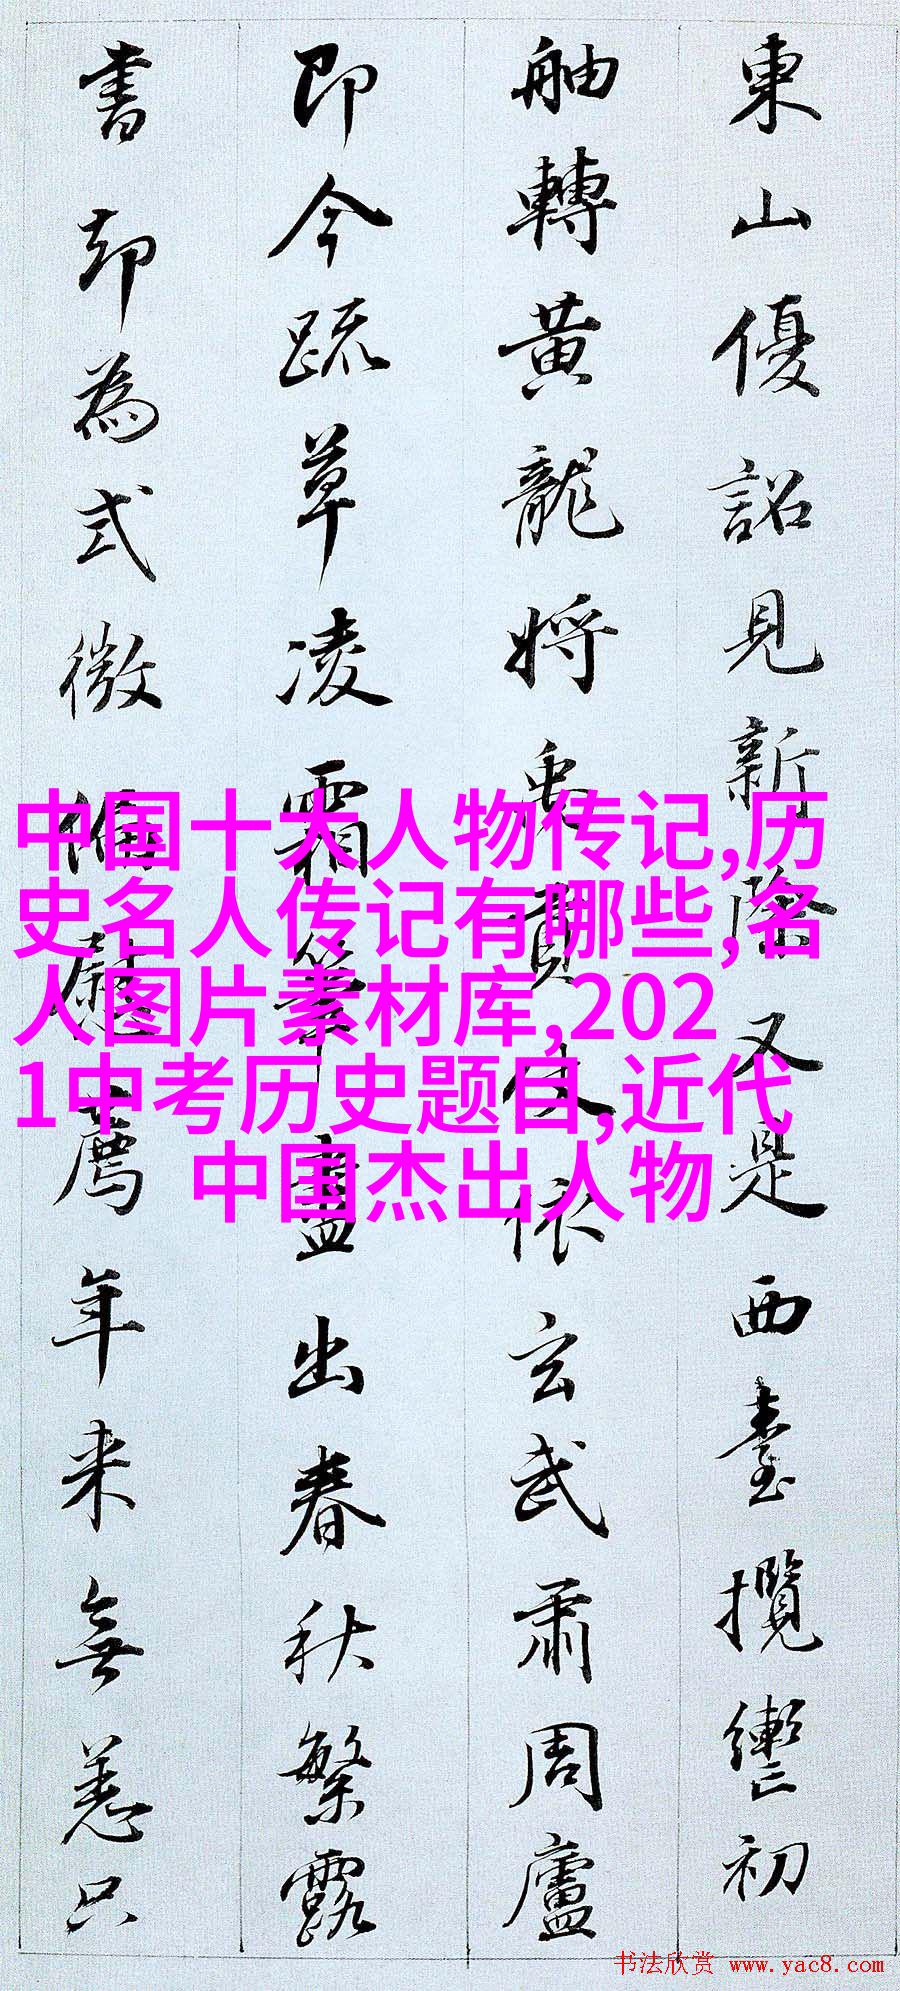 東山優詔見新除又是西臺攬轡初
舳轉黃龍將禹貢久依玄武肅周廬
即今疏草凌霜筆盡出春秋繁露
書却為式微偏慰薦年来無恙只
中国十大人物传记,历
史名人传记有哪些,名
人图片素材库,202
1中考历史题目,近代
中国杰出人物
书法欣赏 www.yac8.com